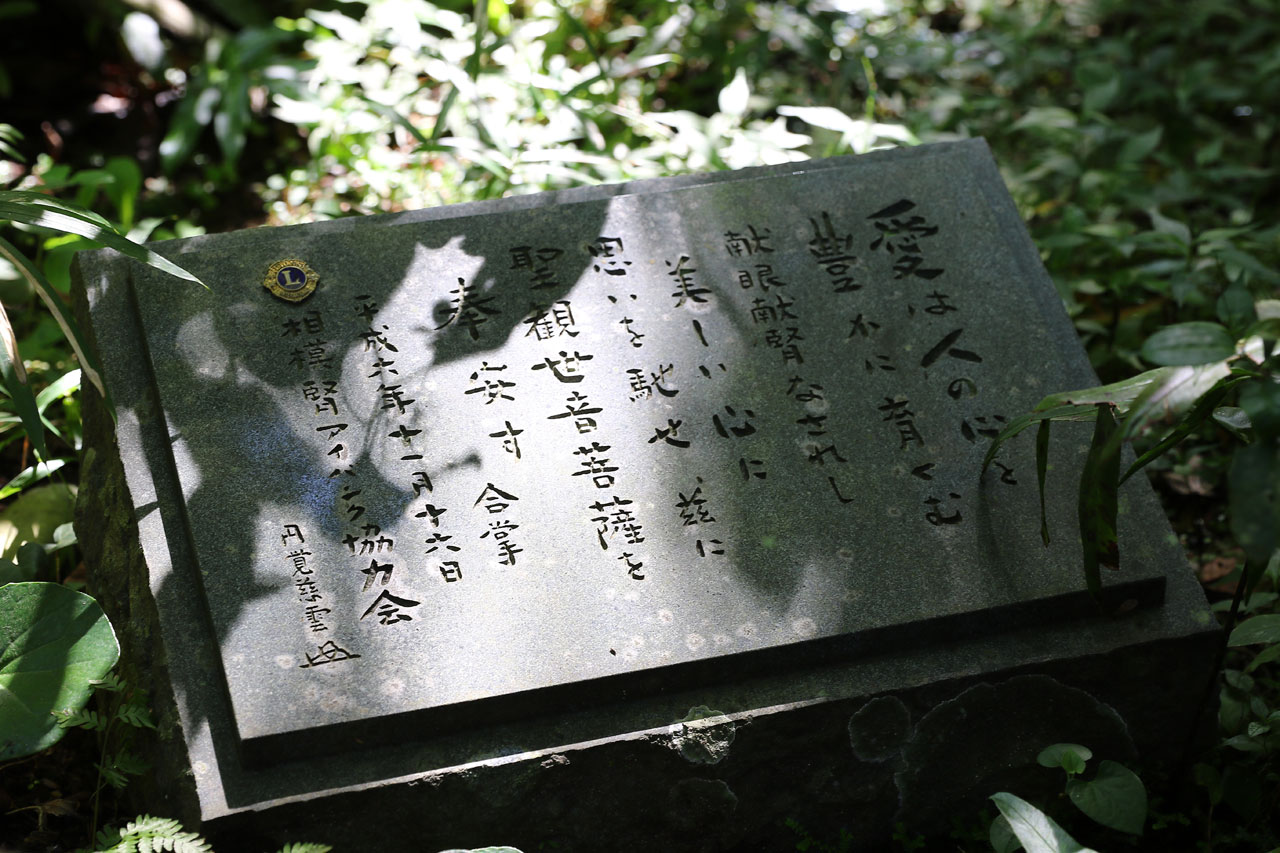 愛は人の心を
豊かに育くむ
献眼献腎なされし
美しい心に
思いを馳せ茲に
聖観世音菩薩を
奉安す 合掌
平成六年十一月十六日
相模腎アイバンク協力会
円覚慈雲
L